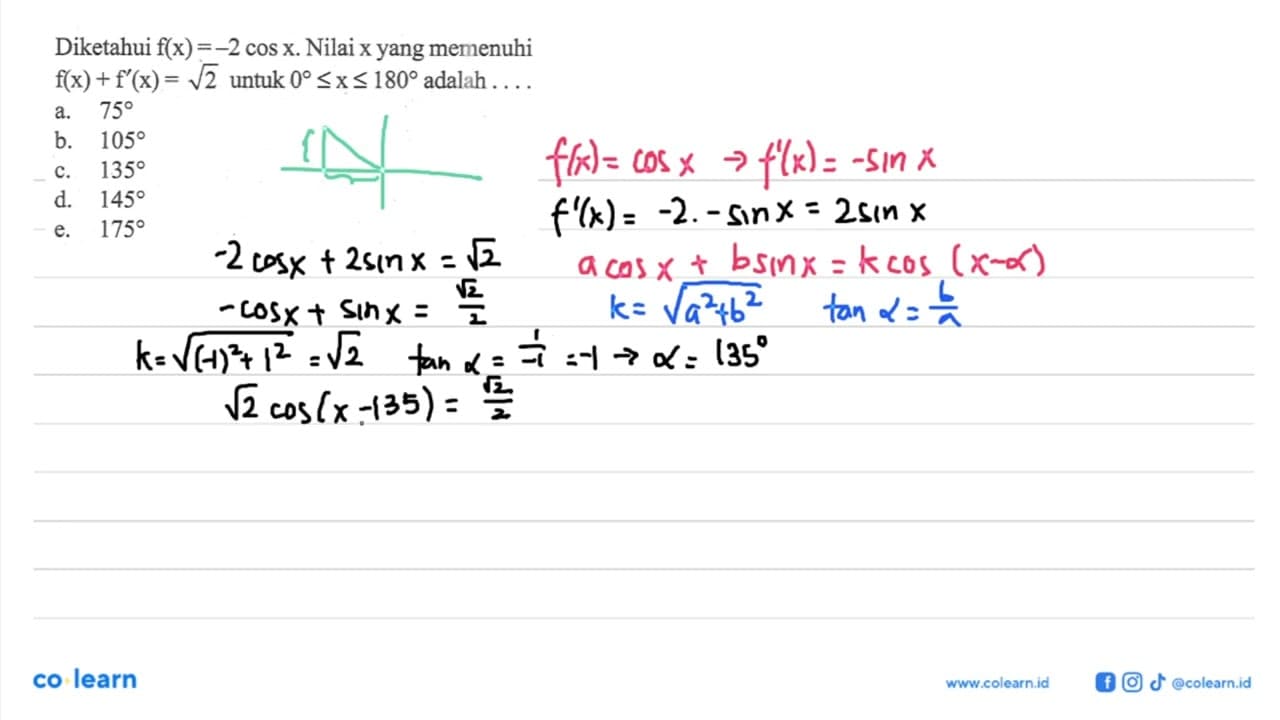 Diketahui f(x) = –2 cos x. Nilai x yang memenuhi
f(x) + f′(x) = √2 untuk 0° ≤ x ≤ 180° adalah . . . .
a. 75°
b. 105°
c. 135°
d. 145°
e. 175°
f(x) = cos x → f'(x) = -sin x
f'(x) = -2. - sin x = 2 sin x
-2 cos x + 2 sin x = √2
a cos x + b sin x = k cos (x-α)
-cos x + sin x = √2/2
k = √(a²+b²) tan α = b/a
k = √((-1)² + 1²) = √2 tan α = 1/-1 = -1 → α = 135°
√2 cos (x - 135) = √2/2
co learn
www.colearn.id
@colearn.id